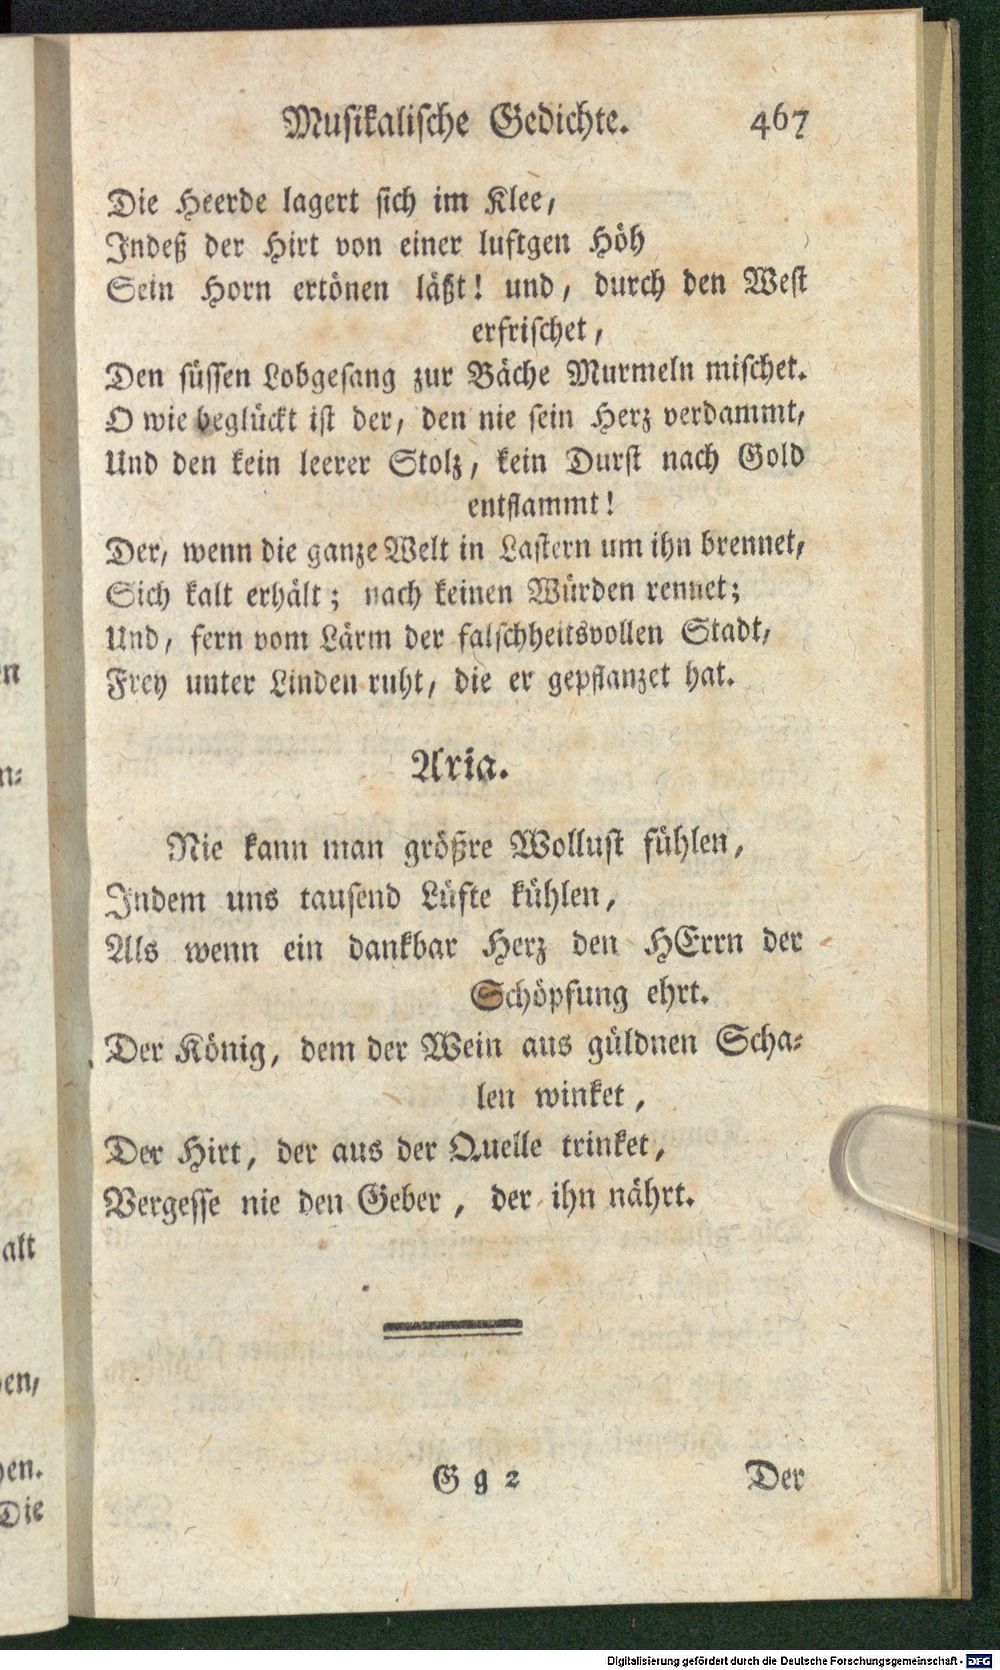 Musikalische Gedichte. 467
Die Heerde lagert sich im Klee,
Indeß der Hirt von einer luftgen Höh
Sein Horn ertönen läßt! und, durch den West
erfrischet,
Den süssen Lobgesang zur Bäche Murmeln mischet.
O wie beglückt ist der, den nie sein Herz verdammt,
Und den kein leerer Stolz, kein Durst nach Gold
entflammt!
Der, wenn die ganze Welt in Lastern um ihn brennet,
Sich kalt erhält; nach keinen Würden rennet;
Und, fern vom Lärm der falschheitsvollen Stadt,
Frey unter Linden ruht, die er gepflanzet hat.
Aria.
Nie kann man größre Wollust fühlen,
Indem uns tausend Lüfte kühlen,
Als wenn ein dankbar Herz den HErrn der
Schöpfung ehrt.
Der König, dem der Wein aus güldnen Scha-
len winket,
Der Hirt, der aus der Quelle trinket,
Vergesse nie den Geber, der ihn nährt.
G g 2 Der
en
n-
alt
en,
en.
Die
Digitalisierung gefördert durch die Deutsche Forschungsgemeinschaft - DFG